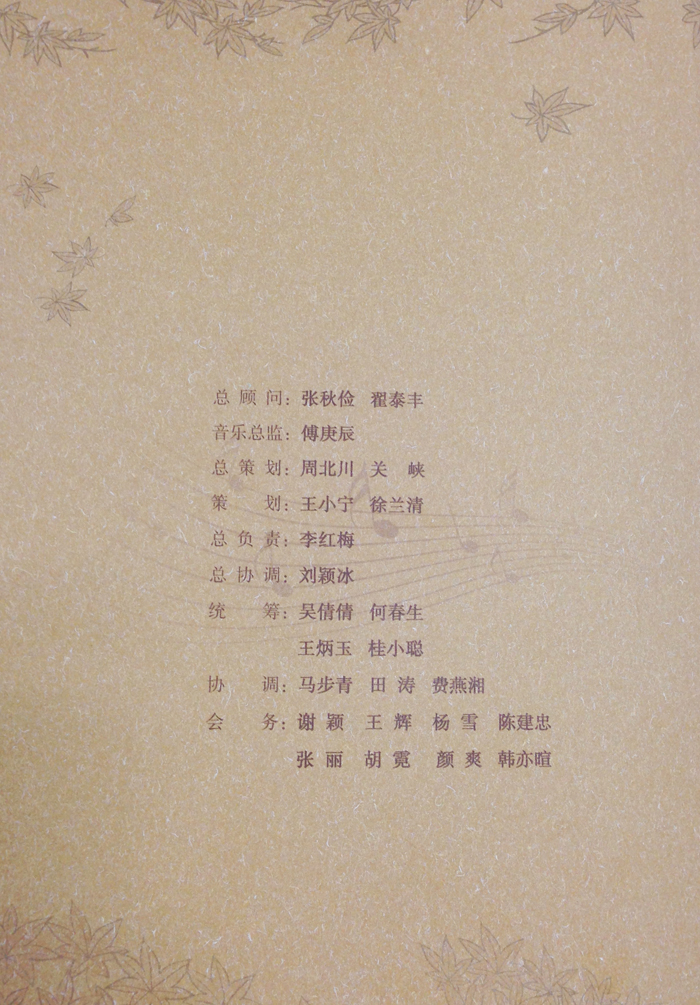 总 顾 问：张秋俭 翟泰丰
音乐总监：傅庚辰
总 策 划：周北川 关 峡
策 划：王小宁 徐兰清
总 负 责：李红梅
总 协 调：刘颖冰
统 筹：吴倩倩 何春生
王炳玉 桂小聪
协 调：马步青 田 涛 费燕湘
会 务：谢 颖 王 辉 杨 雪 陈建忠
张 丽 胡 霓 颜 爽 韩亦暄